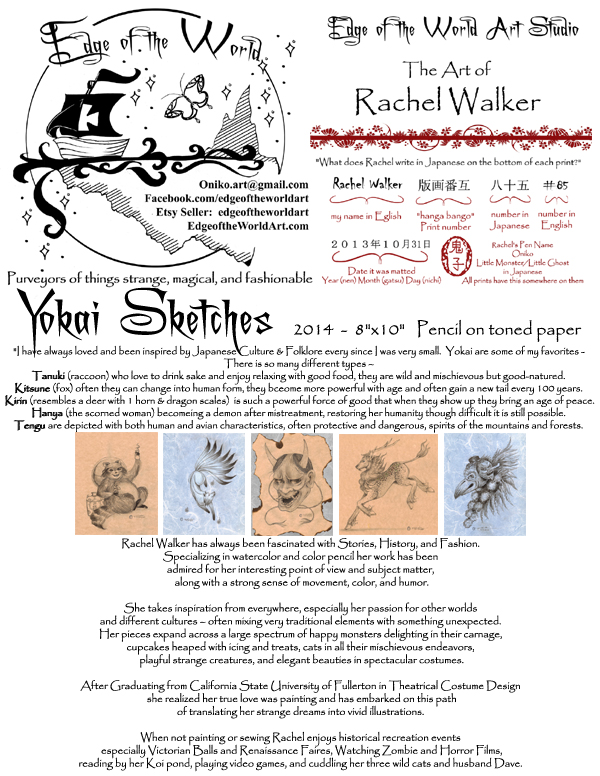 Edge of the World
Oniko.art@gmail.com
Facebook.com/edgeoftheworldart
Etsy Seller: edgeoftheworldart
EdgeoftheWorldArt.com
Purveyors of things strange, magical, and fashionable
Edge of the World Art Studio
The Art of
Rachel Walker
"What does Rachel write in Japanese on the bottom of each print?"
Rachel Walker 版画番互 八十五 #85
my name in Eglish "hanga bango" Print number number in Japanese number in English
2013年10月31日
Date it was matted
Year (nen) Month (gatsu) Day (nichi)
鬼子
Rachel's Pen Name
Oniko
Little Monster/Little Ghost
in Japanese
All prints have this somewhere on them
Yokai Sketches 2014 - 8"x10" Pencil on toned paper
"I have always loved and been inspired by Japanese Culture & Folklore every since I was very small. Yokai are some of my favorites -
There is so many different types ~
Tanuki (raccoon) who love to drink sake and enjoy relaxing with good food, they are wild and mischievous but good-natured.
Kitsune (fox) often they can change into human form, they become more powerful with age and often gain a new tail every 100 years.
Kirin (resembles a deer with 1 horn & dragon scales) is such a powerful force of good that when they show up they bring an age of peace.
Hanya (the scorned woman) becomeing a demon after mistreatment, restoring her humanity though difficult it is still possible.
Tengu are depicted with both human and avian characteristics, often protective and dangerous, spirits of the mountains and forests.
Rachel Walker has always been fascinated with Stories, History, and Fashion.
Specializing in watercolor and color pencil her work has been
admired for her interesting point of view and subject matter,
along with a strong sense of movement, color, and humor.
She takes inspiration from everywhere, especially her passion for other worlds
and different cultures – often mixing very traditional elements with something unexpected.
Her pieces expand across a large spectrum of happy monsters delighting in their carnage,
cupcakes heaped with icing and treats, cats in all their mischievous endeavors,
playful strange creatures, and elegant beauties in spectacular costumes.
After Graduating from California State University of Fullerton in Theatrical Costume Design
she realized her true love was painting and has embarked on this path
of translating her strange dreams into vivid illustrations.
When not painting or sewing Rachel enjoys historical recreation events
especially Victorian Balls and Renaissance Faires, Watching Zombie and Horror Films,
reading by her Koi pond, playing video games, and cuddling her three wild cats and husband Dave.